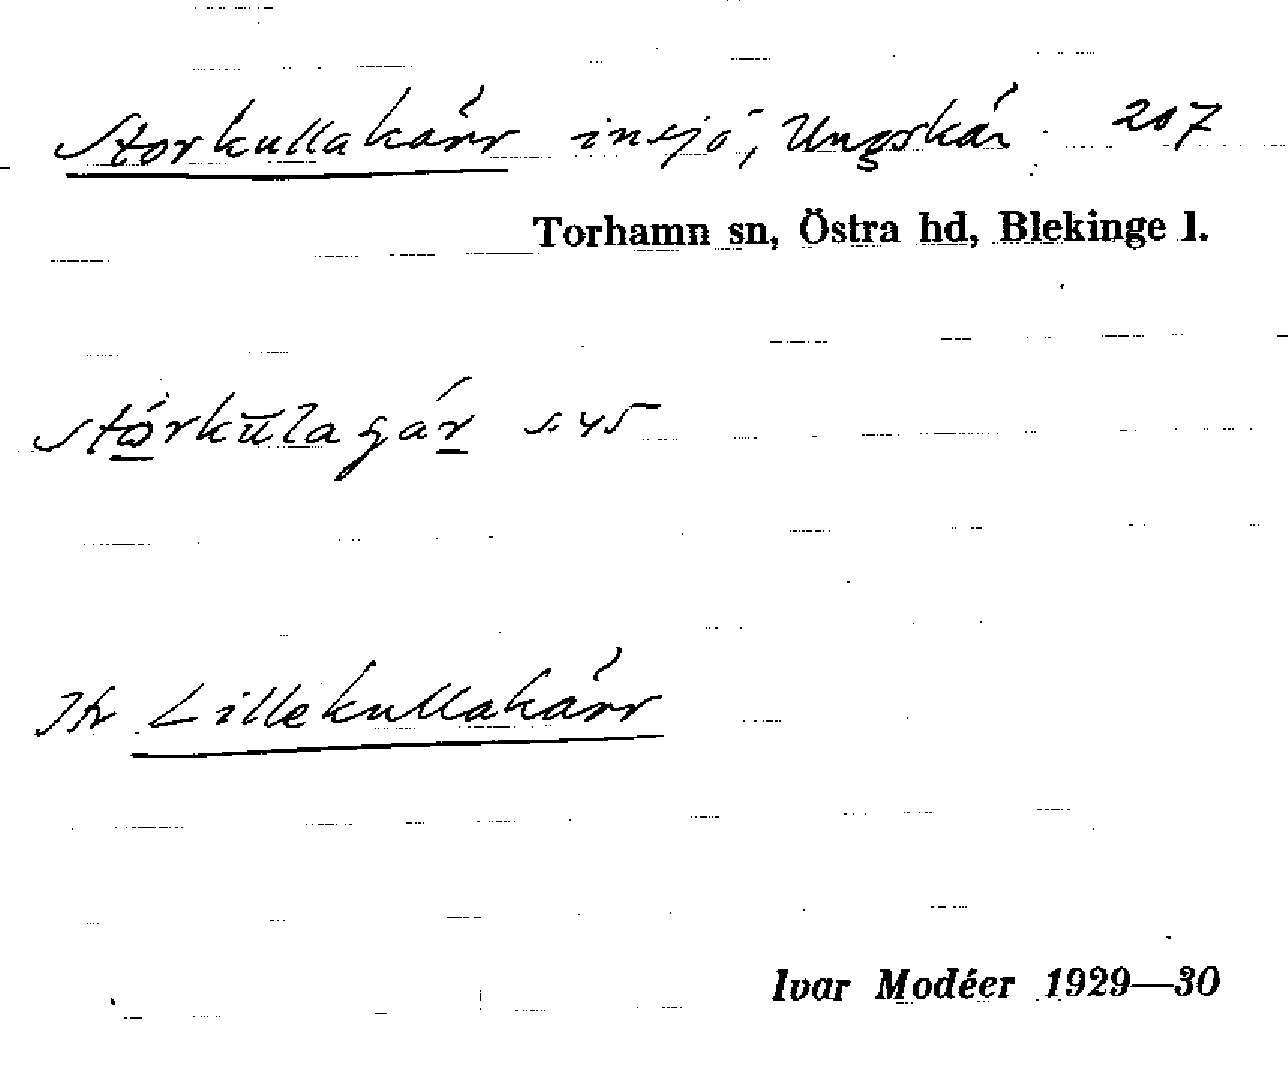 Storkullakärr insjö, Ungskär. 207
Torhamn sn, Östra hd, Blekinge l.
s. 45
Lillekullakärr
Ivar Modéer 1929—30